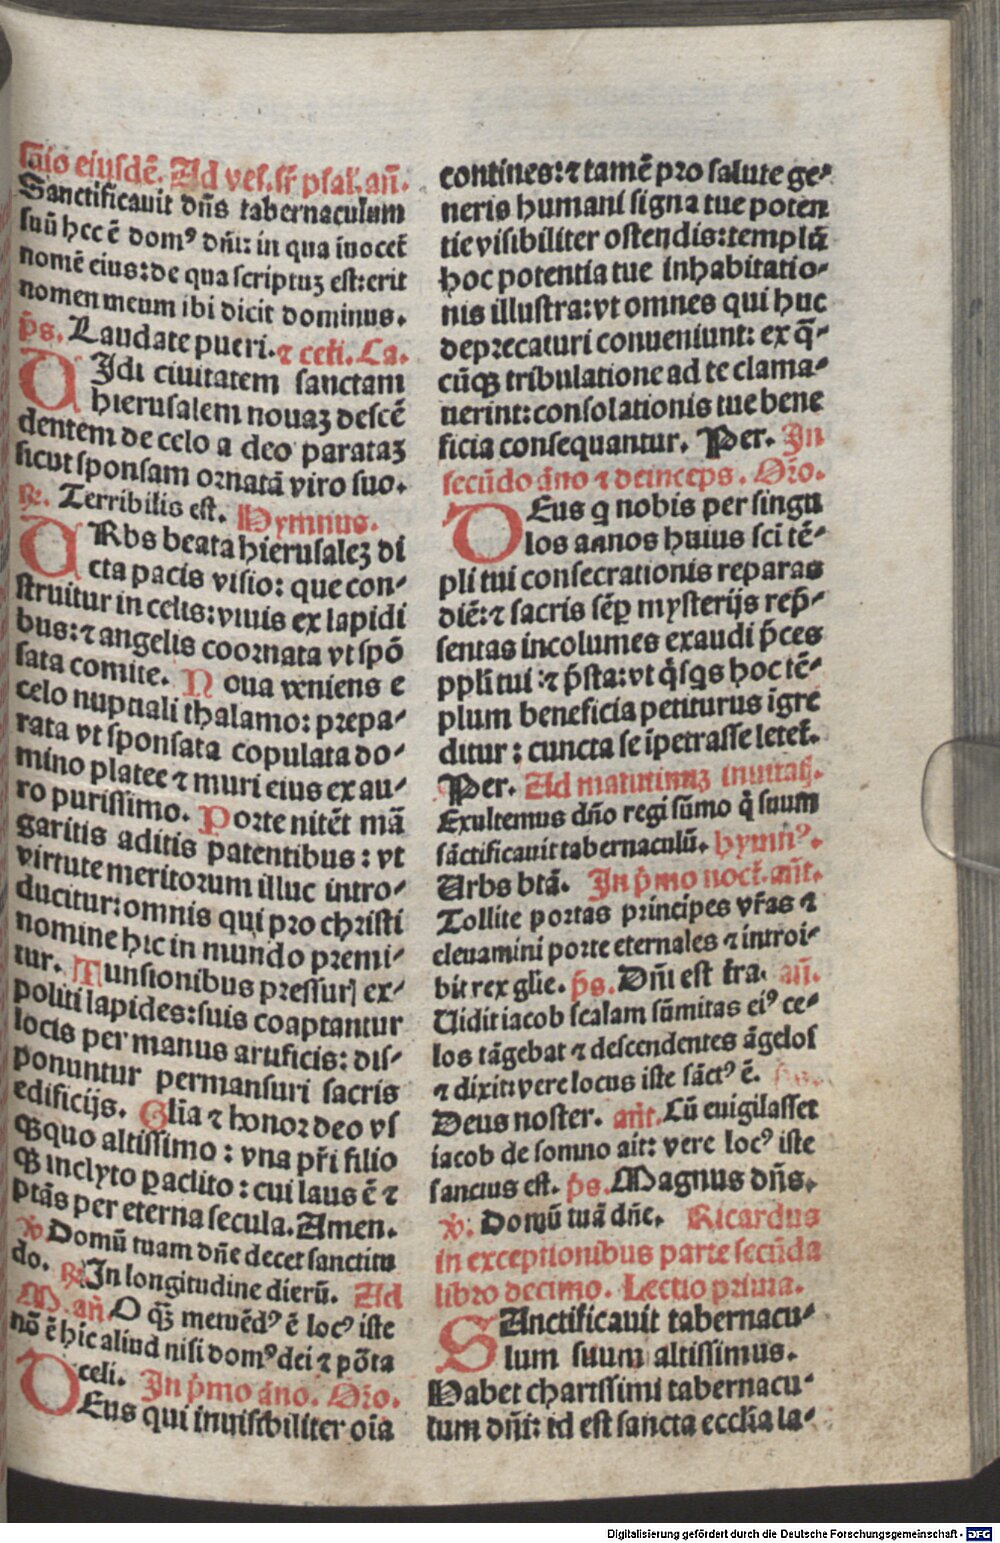 sãio eiusdẽ. Ad ves. sr̃ psal. añ.
Sanctificauit dñs tabernaculum
suũ hec ẽ domꝰ dñi: in qua īuocet̃
nomẽ eius: de qua scriptuꝫ est: erit
nomen meum ibi dicit dominus.
p̃s. Laudate pueri. ⁊ ceti. Ca.
UIdi ciuitatem sanctam
hierusalem nouaꝫ descẽ
dentem de celo a deo parataꝫ
sicut sponsam ornatã viro suo.
℟. Terribilis est. Hymnus.
URbs beata hierusaleꝫ di
cta pacis visio: que con-
struitur in celis: viuis ex lapidi
bus: ⁊ angelis coornata vt spõ
sata comite. Noua veniens e
celo nuptiali thalamo: prepa-
rata vt sponsata copulata do-
mino platee ⁊ muri eius ex au-
ro purissimo. Porte nitẽt mã
garitis aditis patentibus: vt
virtute meritorum illuc intro-
ducitur: omnis qui pro christi
nomine hic in mundo premi-
tur. Tunsionibus pressurꝭ ex-
politi lapides: suis coaptantur
locis per manus artificis: dis-
ponuntur permansuri sacris
edificijs. Glĩa ⁊ honor deo vs
qꝫquo altissimo: vna pr̃i filio
qꝫ inclyto ꝑaclito: cui laus ẽ ⁊
ptãs per eterna secula. Amen.
℣. Domũ tuam dñe decet sanctitu
do. ℟. In longitudine dierũ. Ad
M. añ O qꝫ̃ metuẽdꝰ ẽ locꝰ iste
nõ ẽ hic aliud nisi domꝰ dei ⁊ põta
celi. In p̃mo ãno. Oro.
DEus qui inuisibiliter oĩa
contines: ⁊ tamẽ pro salute ge-
neris humani signa tue poten
tie visibiliter ostendis: templũ
hoc potentia tue inhabitatio-
nis illustra: vt omnes qui huc
deprecaturi conueniunt: ex q̃-
cũqꝫ tribulatione ad te clama-
uerint: consolationis tue bene
ficia consequantur. Per. In
secũdo ãno ⁊ deinceps. Orõ.
DEus q nobis per singu
los annos huius sci tẽ-
pli tui consecrationis reparas
diẽ: ⁊ sacris sẽꝑ mysterijs rep̃-
sentas incolumes exaudi p̃ces
ppli tui: ⁊ p̃sta: vt q̃sqs hoc tẽ-
plum beneficia petiturus īgre
ditur: cuncta se īpetrasse letet̃.
Per. Ad matutinuꝫ inuitat̃.
Exultemus dño regi sũmo q̃ suum
sãctificauit tabernaculũ. hymnꝰ.
Urbs btã. In p̃mo noct̃. añt.
Tollite portas principes vr̃as ⁊
eleuamini porte eternales ⁊ introi-
bit rex glie. p̃s. Dñi est tr̃a. añ.
Uidit iacob scalam sũmitas eiꝰ ce-
los tãgebat ⁊ descendentes ãgelos
⁊ dixit: vere locus iste sãctꝰ ẽ. p̃s.
Deus noster. añt. Cũ euigilasset
iacob de somno ait: vere locꝰ iste
sanctus est. p̃s. Magnus dñs.
℣. Domũ tuã dñe. Ricardus
in exceptionibus parte secũda
libro decimo. Lectio prima.
SAnctificauit tabernacu-
lum suum altissimus.
Habet charissimi tabernacu-
lum dñi: id est sancta ecclĩa la-
Digitalisierung gefördert durch die Deutsche Forschungsgemeinschaft - DFG